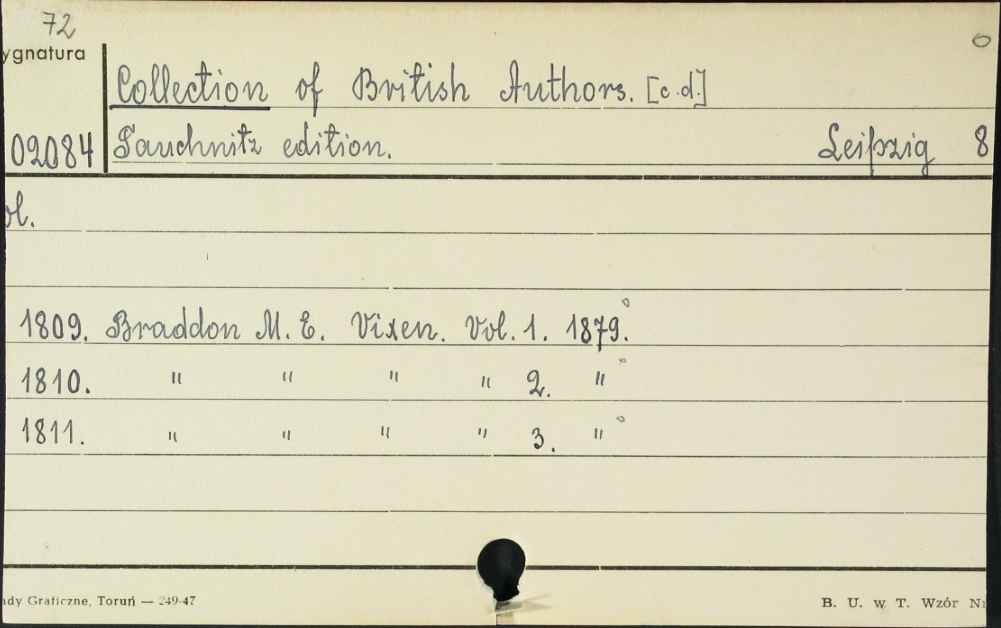 72
ygnatura
Collection of British Authors. [c.d.]
02084 Tauchnitz edition. Leipzig 8
ol.
1809. Braddon M. E. Vixen. Vol. 1. 1879.°
1810. " " " " 2. " °
1811. " " " " 3. " °
ady Graficzne, Toruń — 249-47 B. U. w T. Wzór Nr